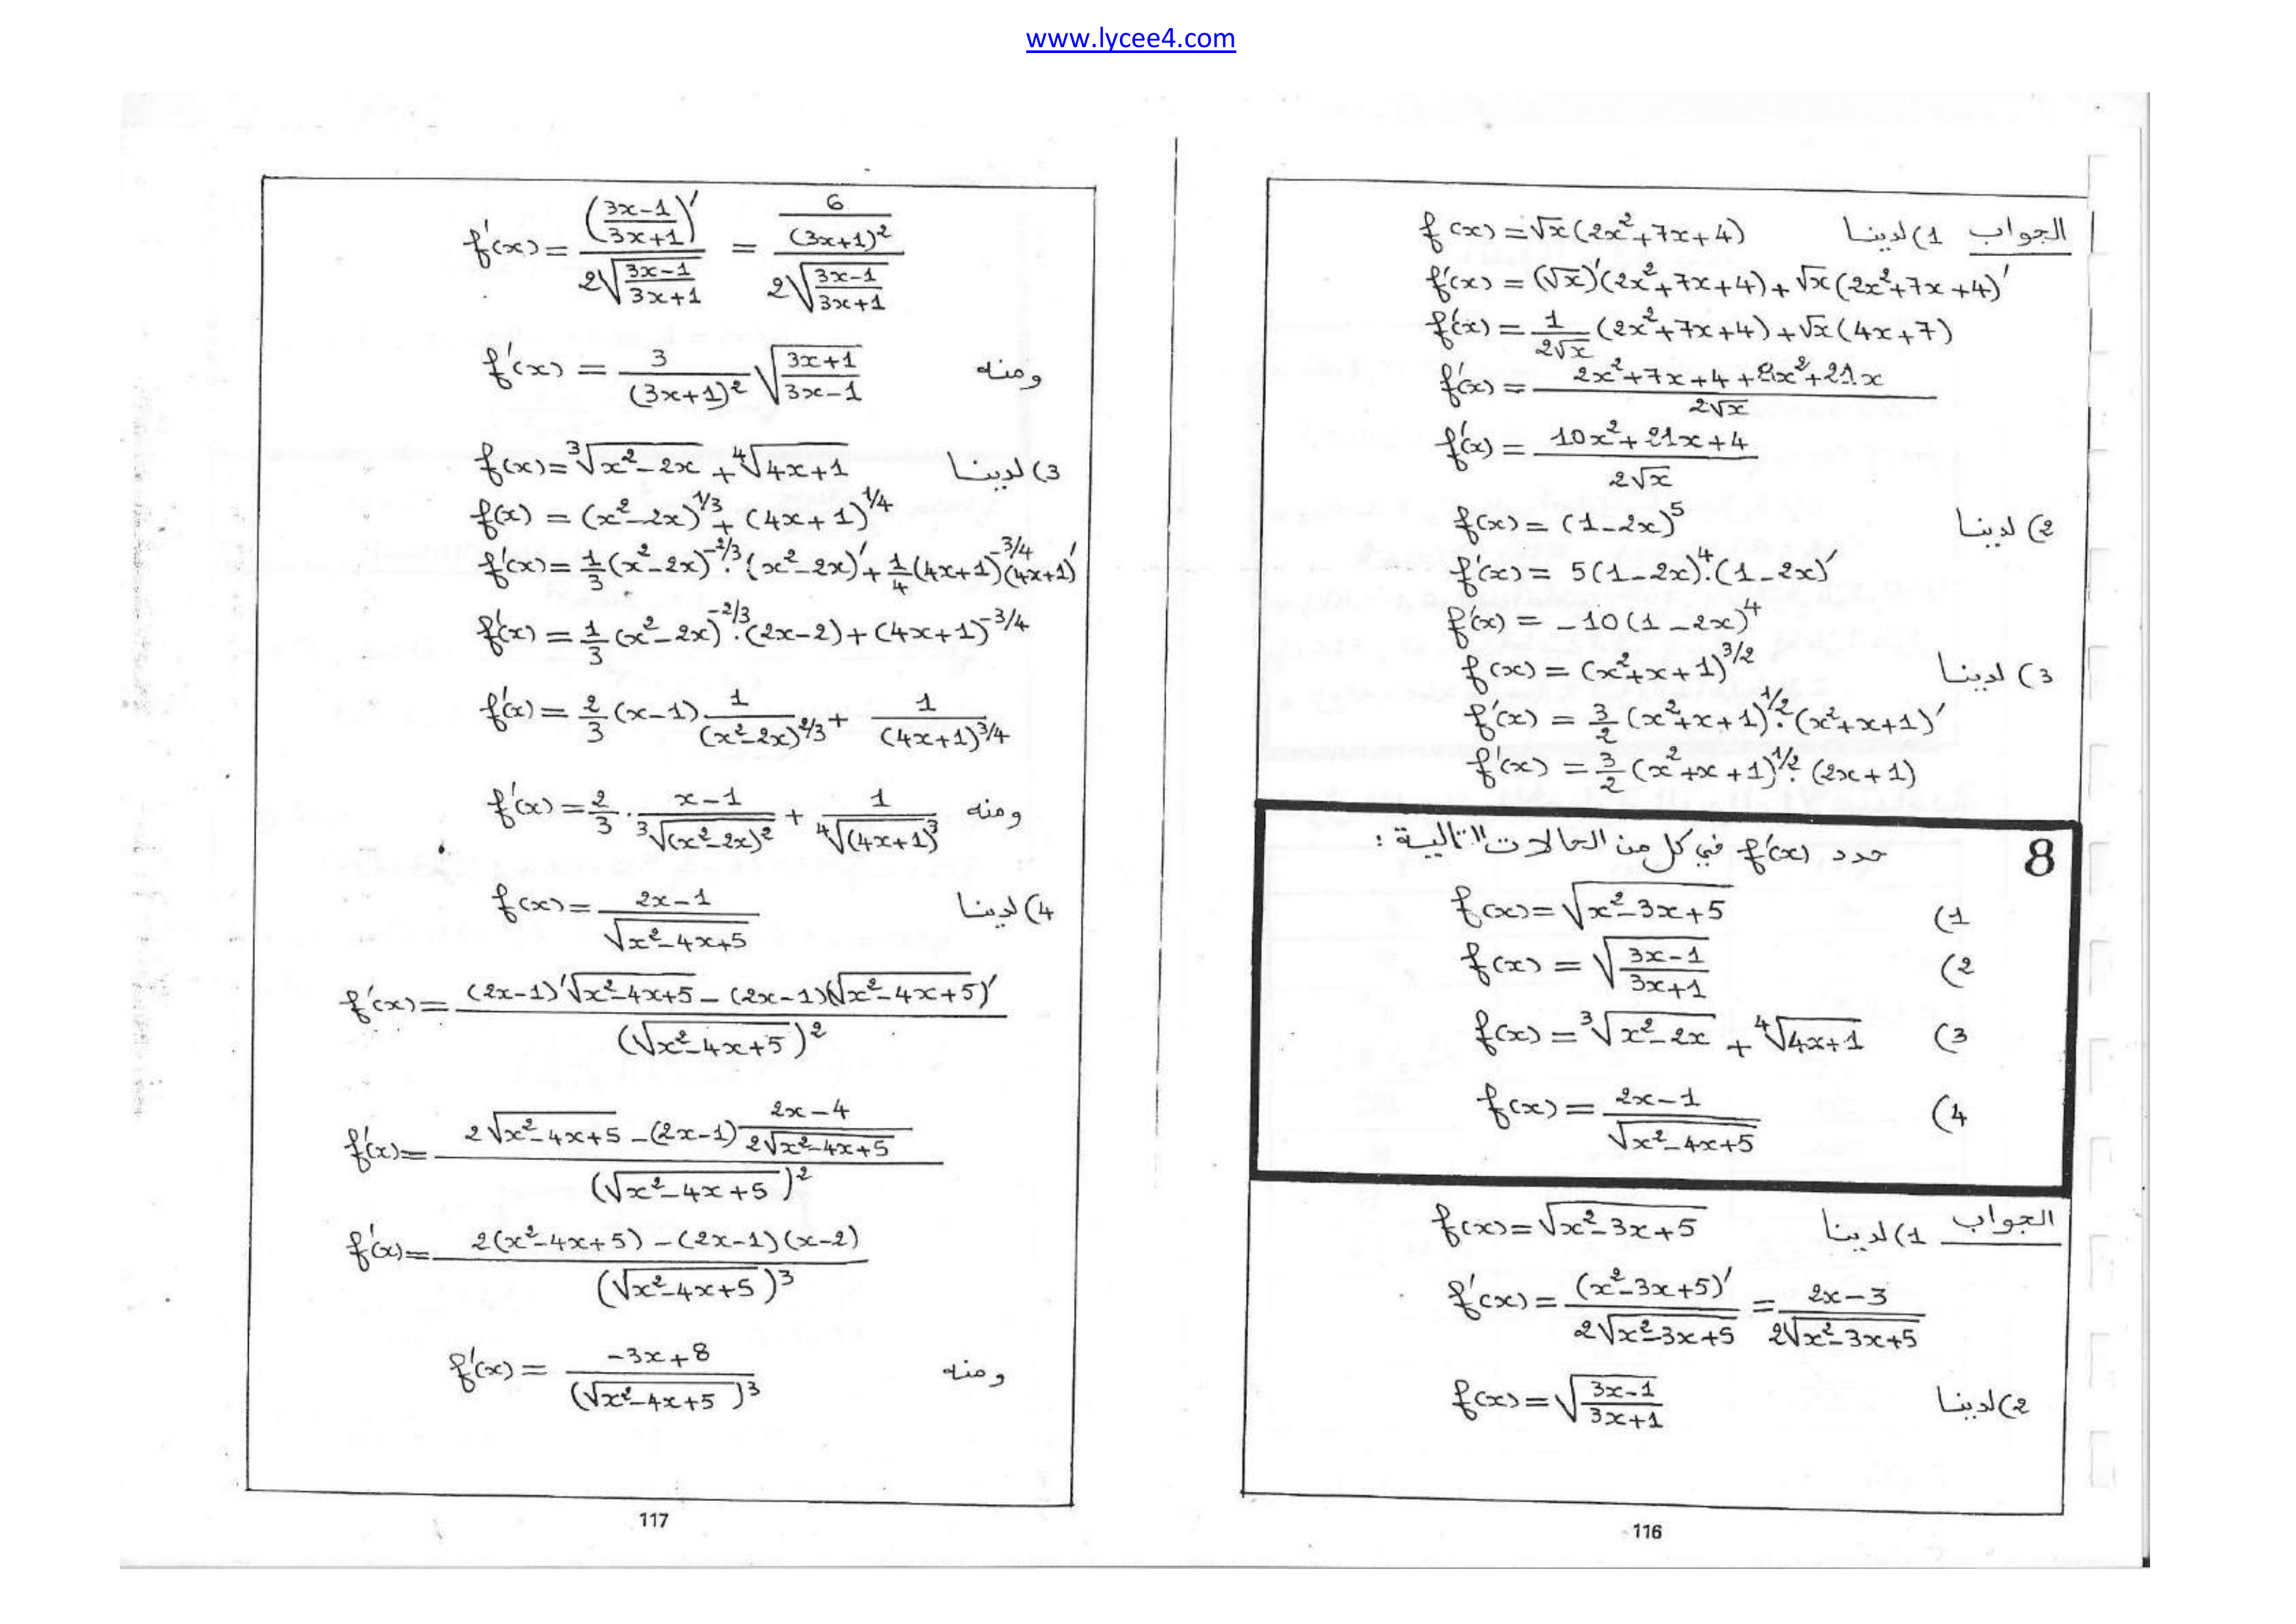 www.lycee4.com
الجواب 1) لدينا f(x) = √x (2x²+7x+4)
f'(x) = (√x)'(2x²+7x+4) + √x (2x²+7x+4)'
f'(x) = 1/(2√x) (2x²+7x+4) + √x (4x+7)
f'(x) = (2x²+7x+4+8x²+21x)/(2√x)
f'(x) = (10x²+21x+4)/(2√x)
2) لدينا f(x) = (1-2x)⁵
f'(x) = 5(1-2x)⁴.(1-2x)'
f'(x) = -10(1-2x)⁴
3) لدينا f(x) = (x²+x+1)^(3/2)
f'(x) = 3/2 (x²+x+1)^(1/2).(x²+x+1)'
f'(x) = 3/2 (x²+x+1)^(1/2).(2x+1)
8 حدد f'(x) في كل من الحالات التالية :
1) f(x) = √(x²-3x+5)
2) f(x) = √((3x-1)/(3x+1))
3) f(x) = ³√(x²-2x) + ⁴√(4x+1)
4) f(x) = (2x-1)/√(x²-4x+5)
الجواب 1) لدينا f(x) = √(x²-3x+5)
f'(x) = (x²-3x+5)'/(2√(x²-3x+5)) = (2x-3)/(2√(x²-3x+5))
2) لدينا f(x) = √((3x-1)/(3x+1))
116
f'(x) = ((3x-1)/(3x+1))'/(2√((3x-1)/(3x+1))) = (6/(3x+1)²)/(2√((3x-1)/(3x+1)))
ومنه f'(x) = 3/(3x+1)² √((3x+1)/(3x-1))
3) لدينا f(x) = ³√(x²-2x) + ⁴√(4x+1)
f(x) = (x²-2x)^(1/3) + (4x+1)^(1/4)
f'(x) = 1/3 (x²-2x)^(-2/3).(x²-2x)' + 1/4 (4x+1)^(-3/4)(4x+1)'
f'(x) = 1/3 (x²-2x)^(-2/3).(2x-2) + (4x+1)^(-3/4)
f'(x) = 2/3 (x-1) 1/(x²-2x)^(2/3) + 1/(4x+1)^(3/4)
ومنه f'(x) = 2/3 . (x-1)/³√((x²-2x)²) + 1/⁴√((4x+1)³)
4) لدينا f(x) = (2x-1)/√(x²-4x+5)
f'(x) = ((2x-1)'√(x²-4x+5) - (2x-1)(√(x²-4x+5))')/(√(x²-4x+5))²
f'(x) = (2√(x²-4x+5) - (2x-1) (2x-4)/(2√(x²-4x+5)))/(√(x²-4x+5))²
f'(x) = (2(x²-4x+5) - (2x-1)(x-2))/(√(x²-4x+5))³
ومنه f'(x) = (-3x+8)/(√(x²-4x+5))³
117